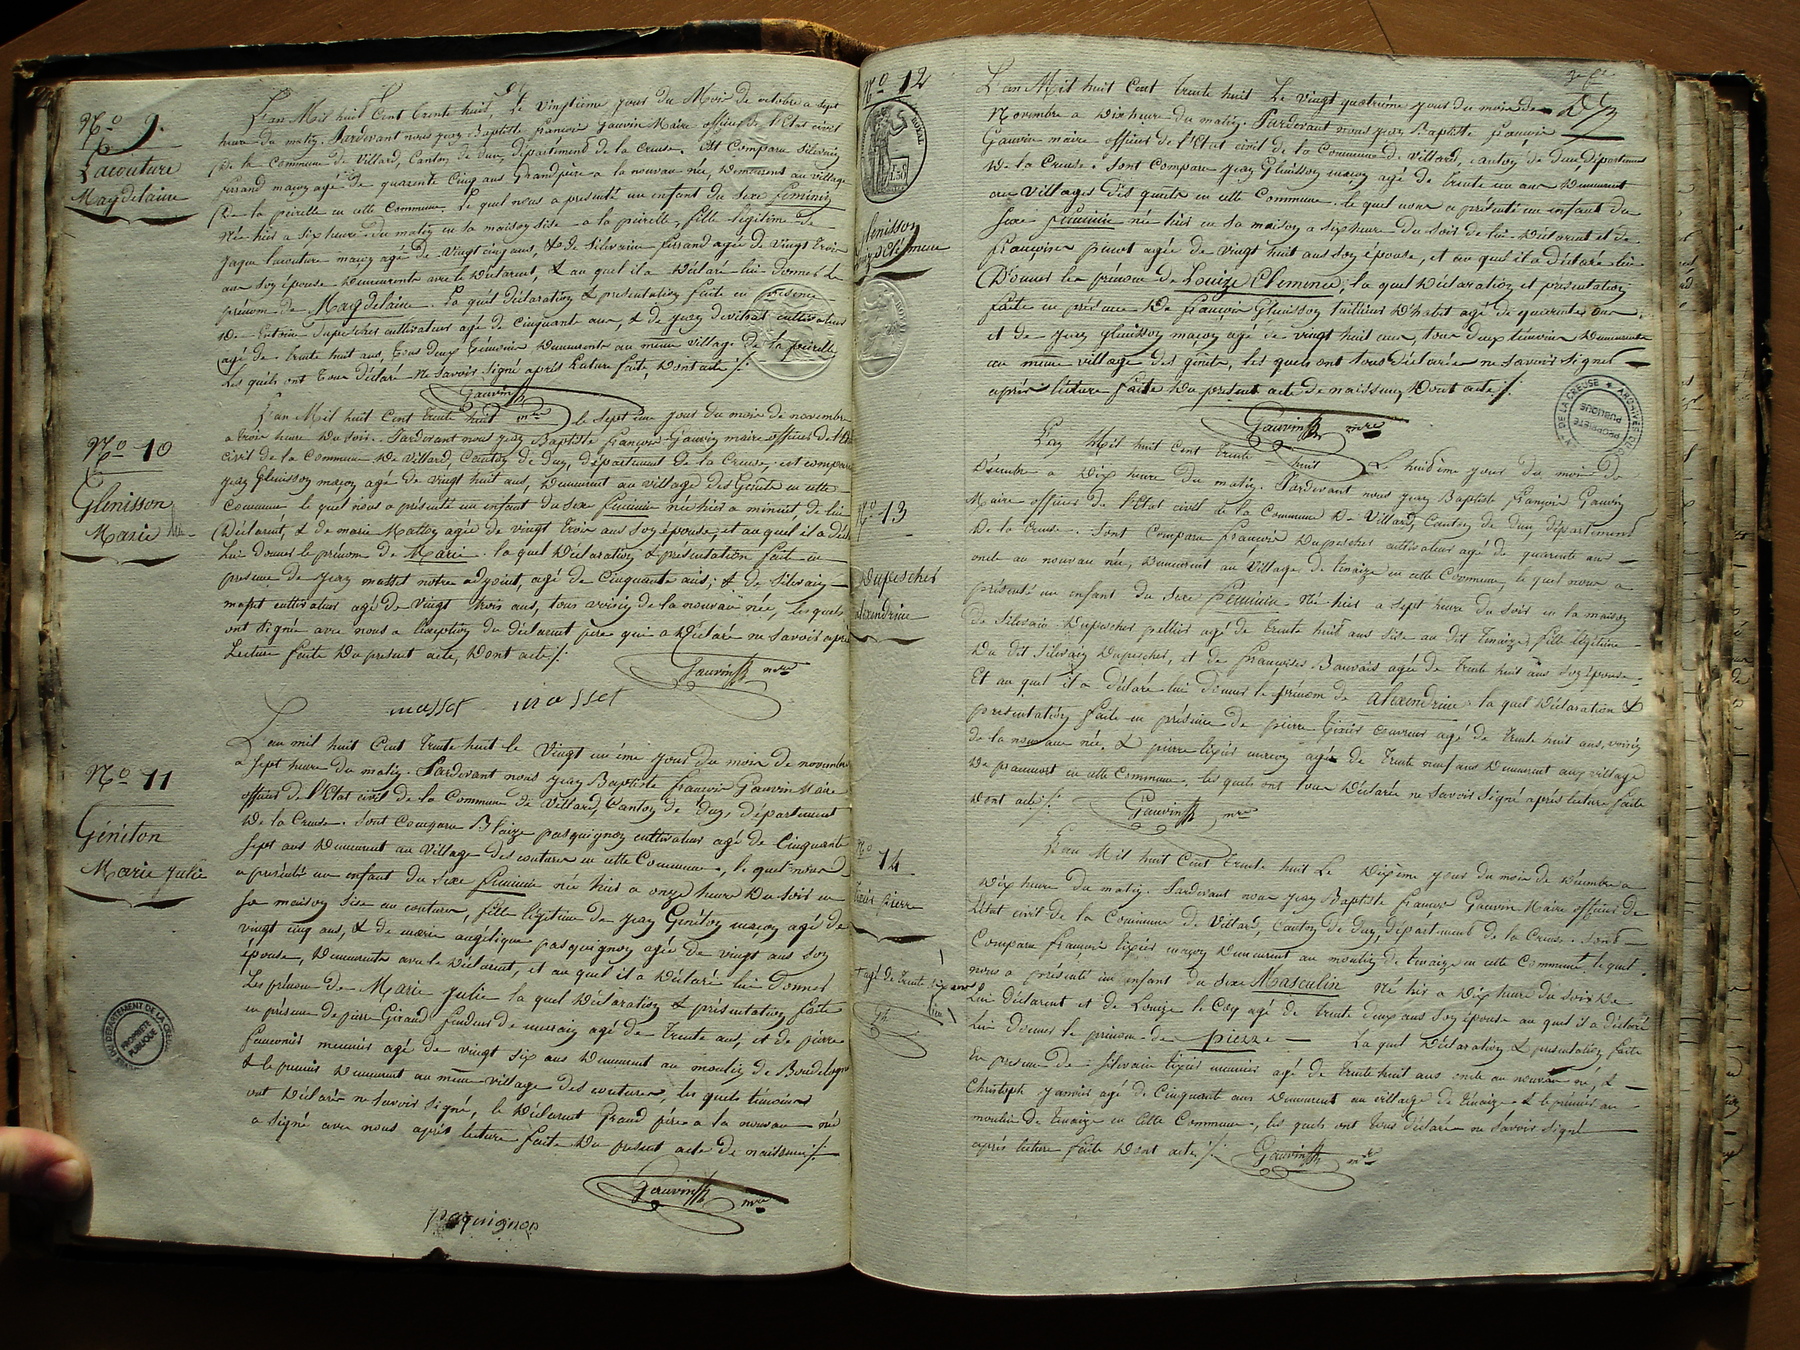 No 9.
Lacouture
Magdelaine
L'an Mil huit Cent trente huit, Le vingtième jour du Mois de octobre a sept
heure du matin. Pardevant nous jean Baptiste françois Gauvin Maire officier de l'Etat civil
De la Commune de Villard, Canton de Dun, département de la Creuse. Est Comparu Silvain
ferrand maçon agé de quarente Cinq ans Grand père a la nouveau née, Demeurent au village
De la peirelle en cette Commune. Le quel nous a presenté un enfant du Sexe féminin
Née hier a six heure du matin en sa maison sise a la peirelle, fille legitime de
jaque lacouture maçon agé de vingt cinq ans, & de Silvaine ferrand agée de vingt trois
ans son épouse Demeurents avec le Déclarent, & au quel il a Déclaré lui donner le
prénom de Magdelaine. La quel déclaration & presentation faite en presence
De Dupeschet cultivateur agé de Cinquante ans, & de jean cultivateur
agé de trente huit ans, tous deux témoins Demeurents au meme village de la peirelle
Les quels ont tous déclaré Ne Savoir Signé après lecture faite, Dont acte /.
Gauvin mre
No 10
Glenisson
Marie
L'an Mil huit Cent trente huit le Sept ieme jour du mois de novembre
a trois heure Du soir. Pardevant nous jean Baptiste françois Gauvin maire officier de l'Etat
civil de la Commune De Villard, Canton de Dun, département de la Creuse, est comparu
jean Glenisson maçon agé de vingt huit ans, Demeurent au village des Genéte en cette
Commune le quel nous a présenté un enfant du Sexe féminin née hier a minuit de lui
Déclarent, & de marie Mattou agée de vingt trois ans son épouse, et au quel il a déclaré
Lui donner le prénom de Marie. la quel Déclaration & présentation faite en
presence de jean masset notre adjoint, agé de Cinquante ans; & de Silvain
masset cultivateur agé de vingt trois ans, tous voisin de la nouveau née, les quels
ont Signé avec nous a l'exeption du déclarent père qui a Déclaré ne Savoir après
Lecture faite Du present acte, Dont acte /.
Gauvin mre
masset masset
No 11
Géniton
Marie Julie
L'an mil huit Cent trente huit le Vingt unième jour du mois de novembre
a Sept heure Du matin. Pardevant nous jean Baptiste françois Gauvin Maire
officier de l'Etat civil de la Commune de Villard, Canton de Dun département
De la Creuse. Sont Comparu Blaize pasquignon cultivateur agé de Cinquante
Sept ans Demeurent au Village des couture en cette Commune, le quel nous
a présenté un enfant du Sexe féminin née hier a onze heure Du Soir en
Sa maison Sise au couture, fille légitime de jean Géniton maçon agé de
vingt cinq ans, & de marie angélique pasquignon agée de vingt ans Son
épouse, Demeurents avec le Déclarent, et au quel il a Déclaré lui donner
Les prénom de Marie Julie la quel Déclaration & présentation faite
en présence de pierre Giraud fendeur de agé de Trente ans, et de pierre
meunier agé de vingt six ans Demeurent au moulin de
& le premier Demeurent au meme village des couture, les quels témoins
ont Déclaré ne Savoir Signé, le Déclarent Grand père a la nouveau née
a Signé avec nous après lecture faite Du present acte de naissence /.
Gauvin mre
Paquignon
DEPARTEMENT DE LA CREUSE
PROPRIETE PUBLIQUE
No 12
ROYAL
Glenisson
L'an Mil huit Cent trente huit Le vingt quatrième jour du mois de
Novembre a Dix heure du matin. Pardevant nous jean Baptiste françois
Gauvin maire officier de l'Etat civil de la Commune de villard, canton de Dun, département
De la Creuse. Sont Comparu jean Glenisson maçon agé de trente un ans Demeurent
au villages des genéte en cette Commune. le quel nous a présenté un enfant du
Sexe féminin née hier en sa maison a six heure du soir de lui Déclarent et de
françoise agée de vingt huit ans son épouse, et au quel il a déclaré lui
Donner les prénom de Louize Clemence, la quel Déclaration et presentation
faite en présence De françois Glenisson tailleur D'habit agé de quarente ans,
et de jean glenisson maçon agé de vingt huit ans, tous deux témoins Demeurents
au meme village des genéte, les quels ont tous déclaré ne Savoir Signé
après lecture faite Du present acte de naissence Dont acte /.
Gauvin mre
ARCHIVES DE LA CREUSE
PROPRIETE PUBLIQUE
No 13
Dupeschet
alexendrine
L'an Mil huit Cent trente huit Le huitième jour du mois de
Décembre a Dix heure du matin. Pardevant nous jean Baptiste françois Gauvin
Maire officier de l'Etat civil de la Commune De Villard, Canton de Dun, département
De la Creuse. Sont Comparu françois Dupeschet cultivateur agé de quarente ans
oncle au nouveau née, Demeurent au Village de tinaize en cette Commune, le quel nous a
présenté un enfant du Sexe féminin Née hier a sept heure du soir en la maison
De Silvain Dupeschet agé de trente huit ans sise au dit tinaize, fille légitime
Du dit Silvain Dupeschet, et de françoises Bauvais agée de trente huit ans son épouse.
Et au quel il a déclaré lui donner le prénom de alexendrine la quel Déclaration &
presentation faite en présence de pierre tixier couvreur agé de trente huit ans, voisin
de la nouveau née, & pierre tixier maçon agé de trente neuf ans Demeurent au village
De en cette Commune, les quels ont tous Déclarés ne Savoir Signé après lecture faite
Dont acte /.
Gauvin mre
No 14
tixier pierre
L'an Mil huit Cent trente huit Le Dixième jour du mois de Décembre a
Dix heure du matin. Pardevant nous jean Baptiste françois Gauvin Maire officier de
L'Etat civil de la Commune de Villard, Canton de Dun, département de la Creuse. Sont
Comparu françois tixier maçon Demeurent au moulin de tinaize en cette Commune le quel
nous a présenté un enfant du Sexe Masculin Né hier a Dix heure du soir De
Lui déclarent et de Louize le Coq agé de trente deux ans son épouse au quel il a déclaré
lui donner le prénom de pierre La quel Déclaration & presentation faite
En presence de Silvain tixier meunier agé de trente huit ans oncle au nouveau né, &
Christoph janvier agé de Cinquant ans Demeurent au village de tinaize & le premier au
moulin de tinaize en cette Commune, les quels ont tous déclaré ne Savoir Signé
après lecture faite Dont acte /.
Gauvin mre